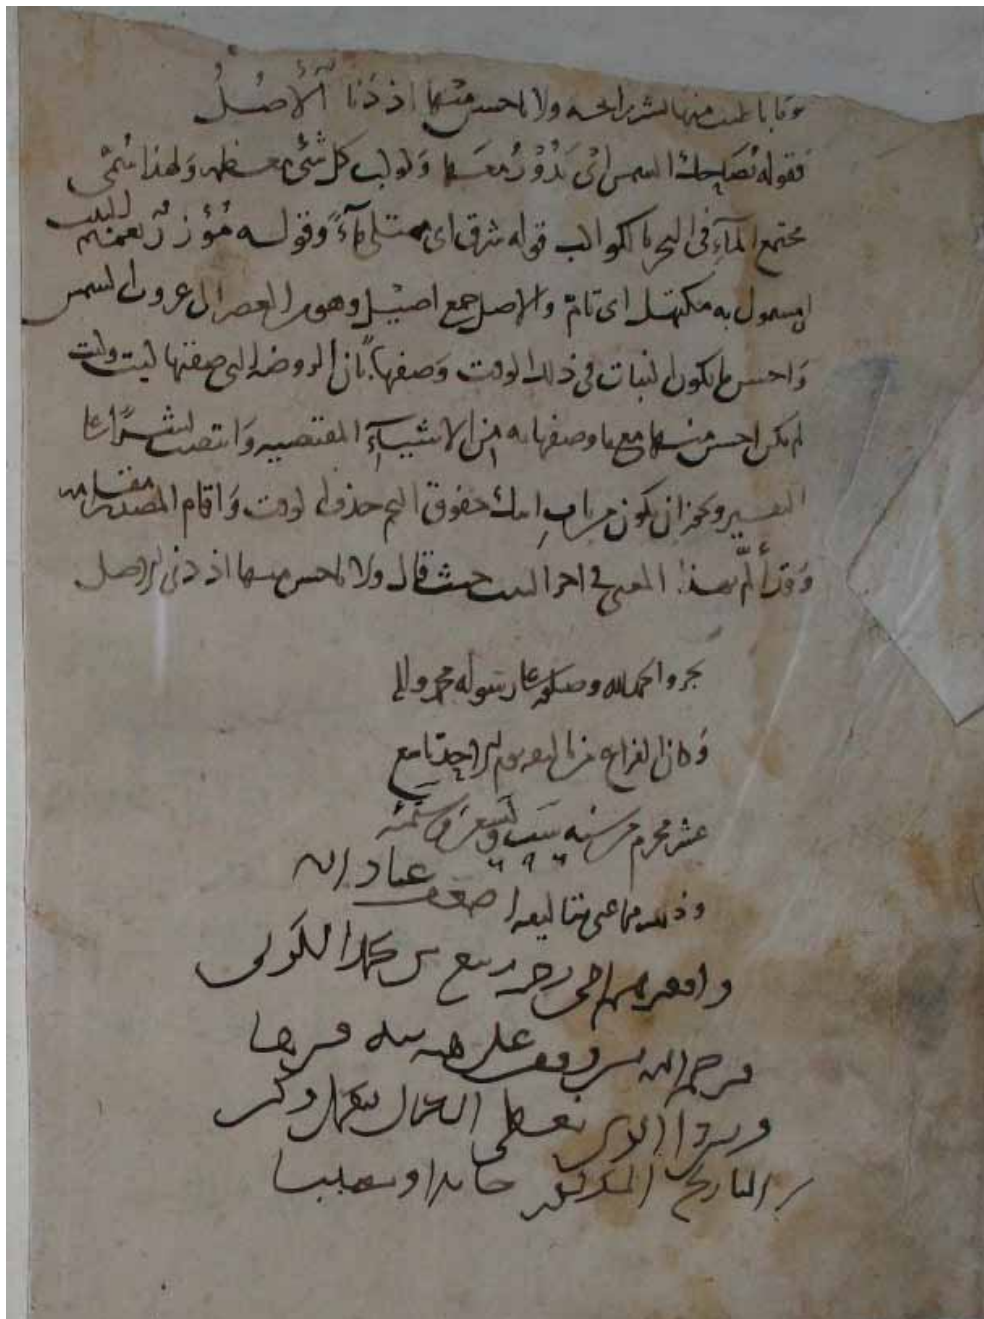 يوما باطيب منها نشر رائحة ولا باحسن منها اذ دَنا الأُصُلُ
فقوله يُضاحك الشمس اي يَدُوْرُ معَها وَكوكب كل شئ معظمه وَلهذا سُمّى
مجتمع المآءِ في البحر بالكواكب قوله شرق اى ممتلى مآءً وقوله مُؤزرٌ بعميم النبت
اى مشمول به مكتهل اى تامّ والاصل جمع اصيْل وهو من العصر الى غروب الشمس
وَاحسن ما يكون النبات في ذلك الوقت وَصفها بان الروضة التي صفتها ليت وليت
لم يكن احسن منها مع ما وصفها به من الاشيآءِ المقتضيه وَانتصب نشرًا على
التفسير ويجوز ان يكون من باب اتيتك خفوق النجم حذف الوقت وَاقام المصدر مقامه
وَقد أَلمّ بهذا المعنى في اخر البيت حيث قال ولا باحسن منها اذ دنى الاصل
نجز والحمد لله وصلواته على رسوله محمد واله
وَكان الفراغ من تاليفه يوم الاحد تاسع
عشر محرم من سنه ست وتسعين وستمئه
٦ ٩ ٦
وذلك مما عنى بتاليفه اضعف عباد الله
وافقرهم الى رحمه ربيع بن محمد الكوفى
فرحم الله من وقف على هفوه فسترها
المذكور حامدا ومصليا